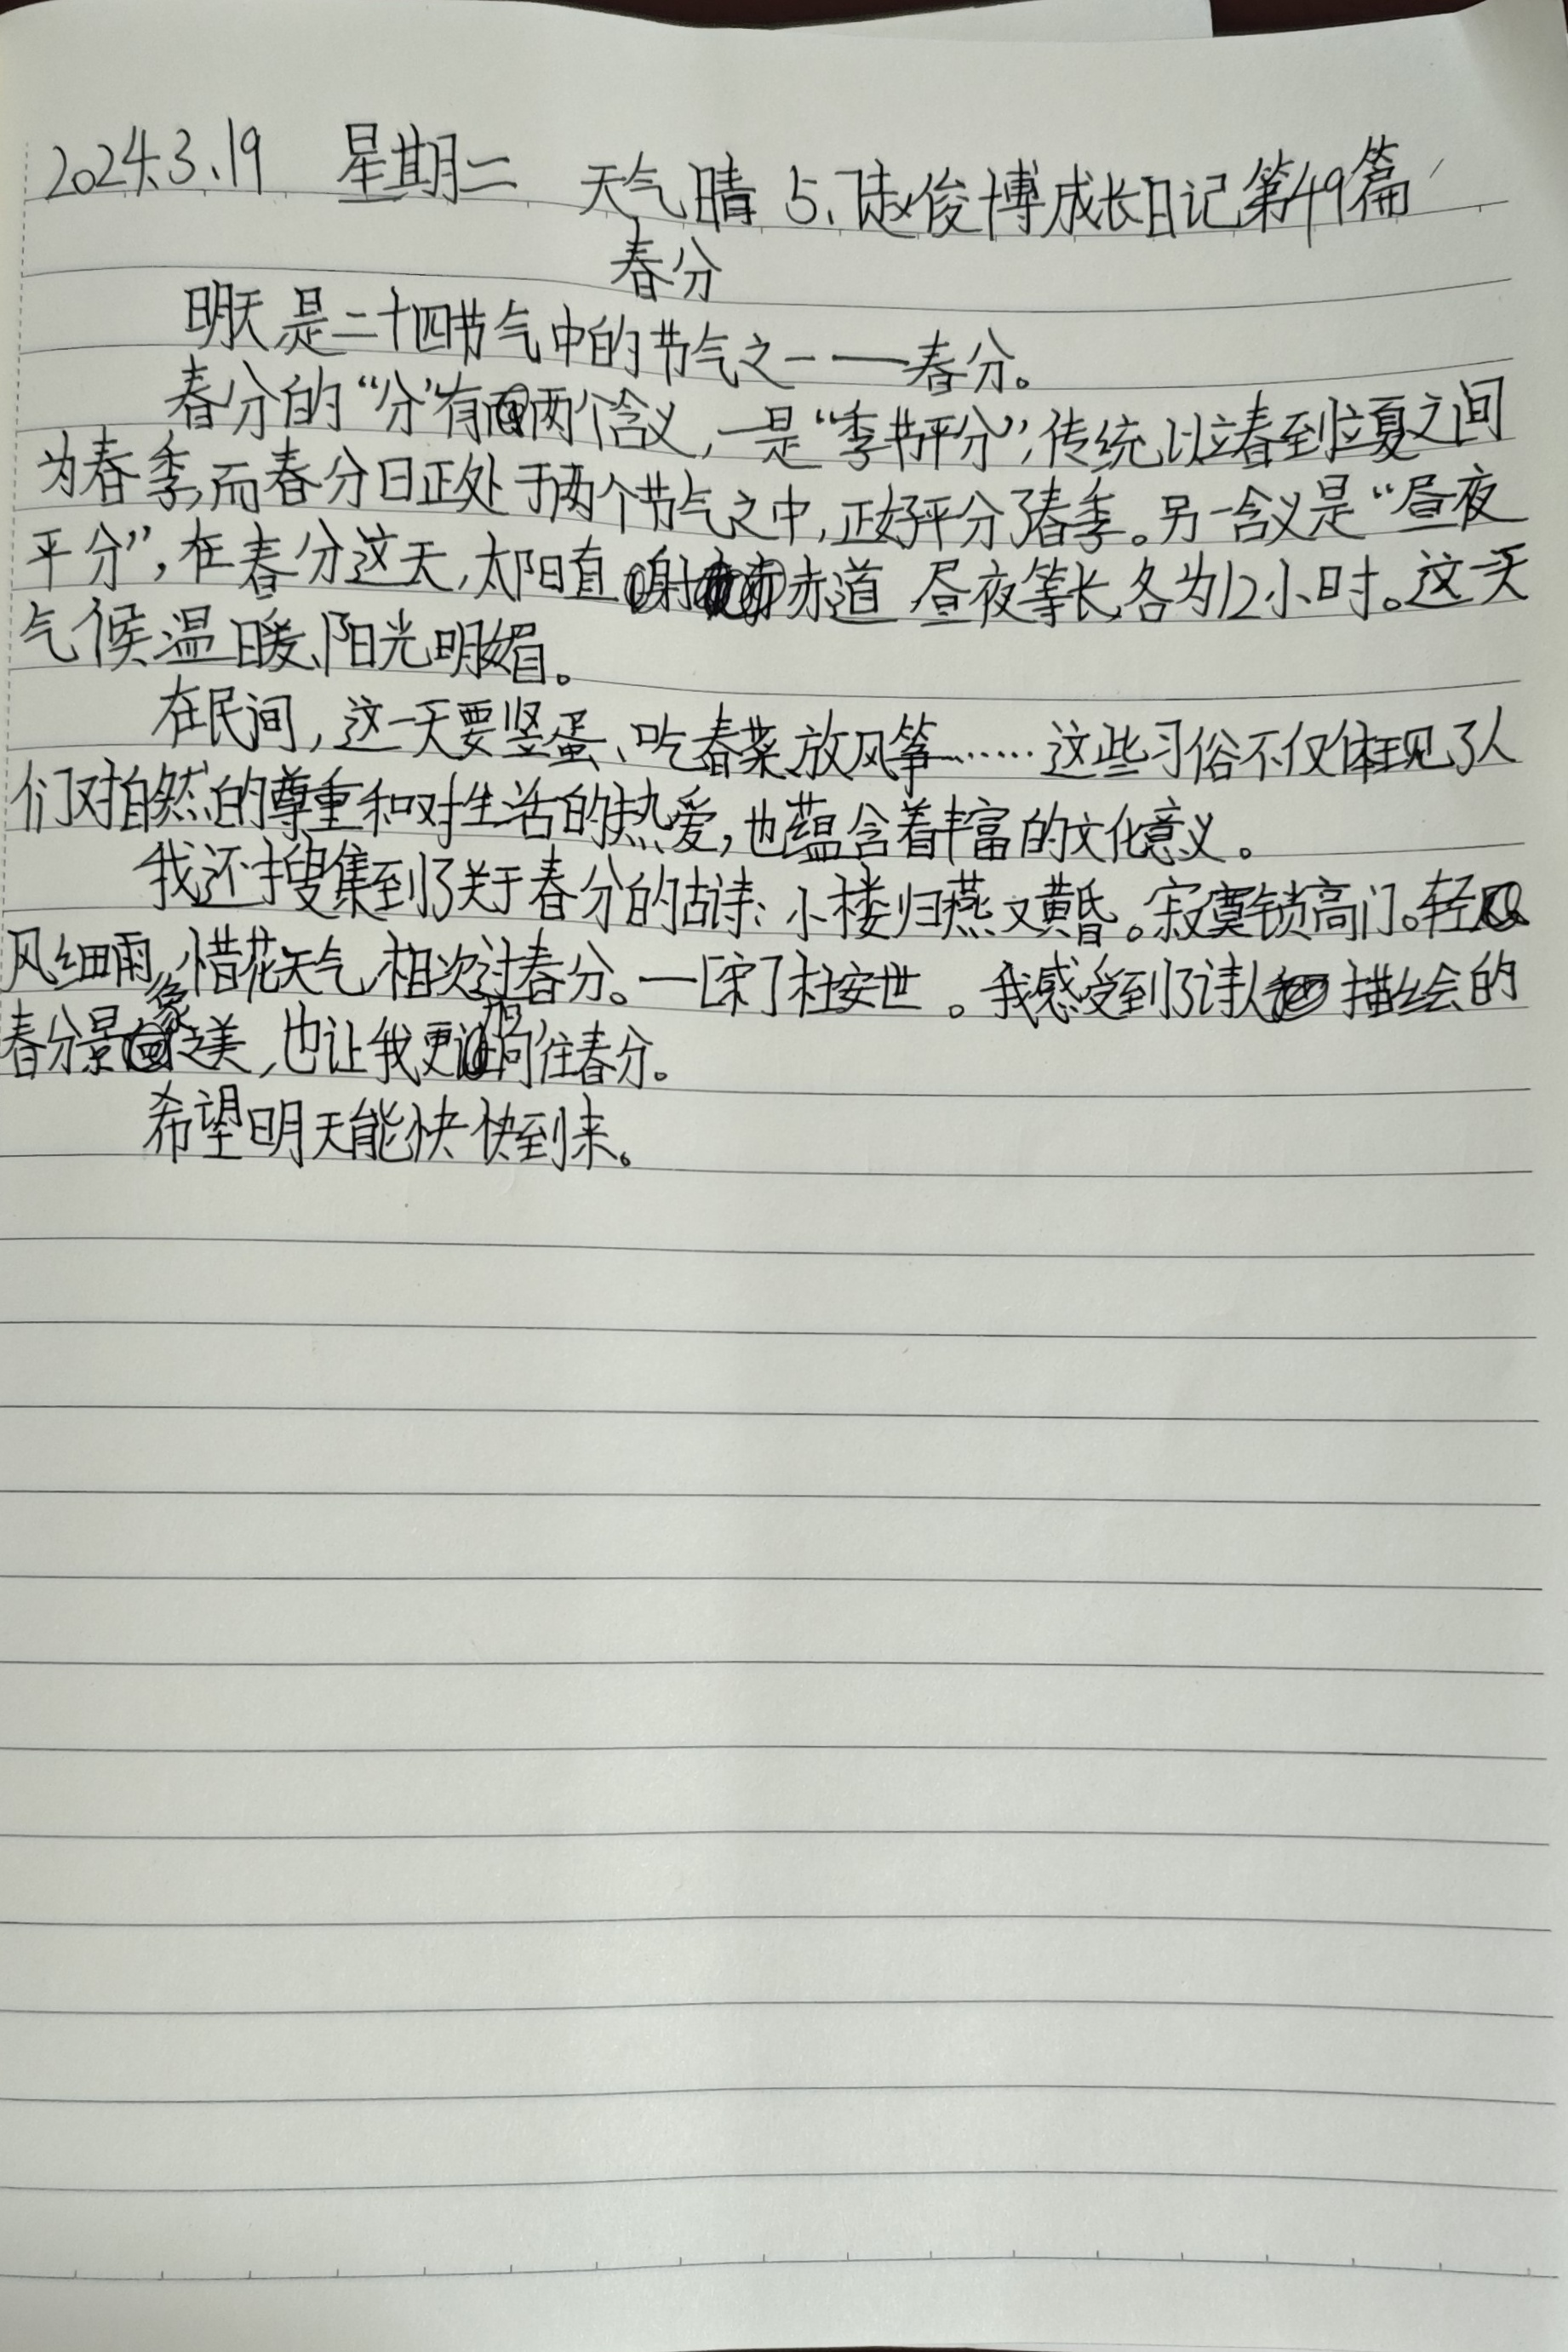 2024.3.19 星期二 天气晴 5.7赵俊博成长日记第49篇
春分
明天是二十四节气中的节气之一——春分。
春分的“分”有两个含义,一是“季节平分”,传统以立春到立夏之间
为春季,而春分日正处于两个节气之中,正好平分了春季。另一含义是“昼夜
平分”,在春分这天,太阳直射赤道 昼夜等长,各为12小时。这一天
气候温暖、阳光明媚。
在民间,这一天要竖蛋、吃春菜、放风筝……这些习俗不仅体现了人
们对自然的尊重和对生活的热爱,也蕴含着丰富的文化意义。
我还搜集到了关于春分的古诗:小楼归燕又黄昏。寂寞锁高门。轻
风细雨,惜花天气,相次过春分。—[宋]杜安世。我感受到了诗人描绘的
春分景象之美,也让我更加向往春分。
希望明天能快快到来。